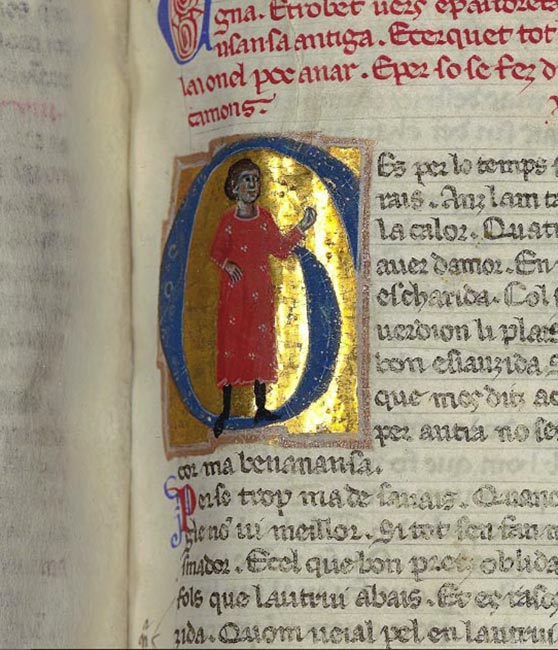 gna. Etrobet uers epastorete
usansa antiga. Ecerquet tot
laionel poc anar. Eper so se fez d
camons.
GEs per lo temps
rais. Anz lam t
la calor. Quat
auer damor. En
escharida. Col
uerdion li pla
bon esiauzida
que mos diz a
per autra no se
cor ma benanansa.
Per se trop ma de sauais. Quan
gie no ui meillor. Si tot sen fan
Et el que bon prez oblida
fols que lautrui abais. Et er
zida. Quom ueial pel en lautru